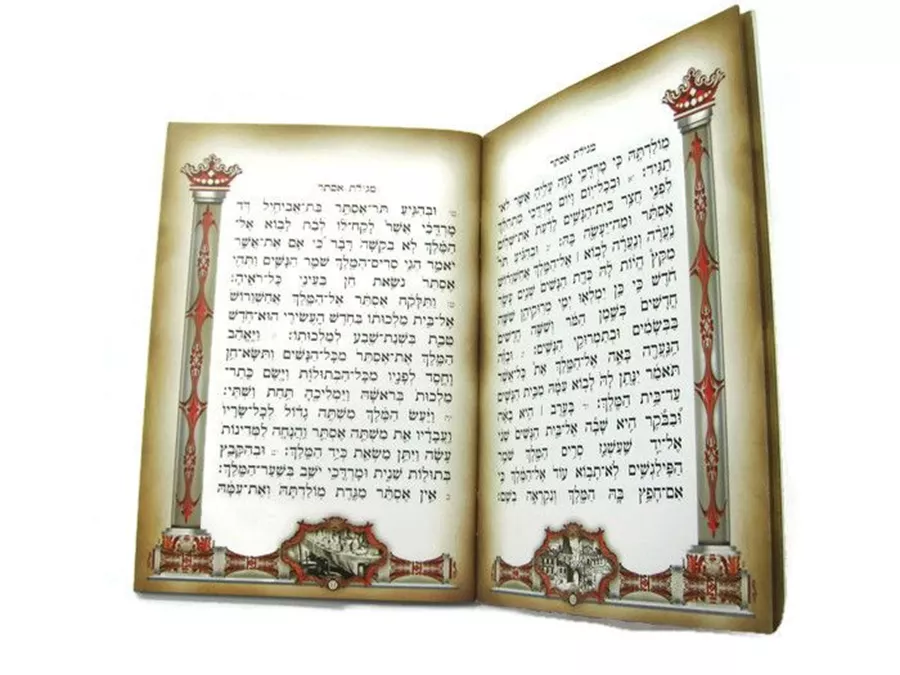 מגילת אסתר
מוֹלַדְתָּהּ כִּי מָרְדֳּכַי צִוָּה עָלֶיהָ אֲשֶׁר לֹא־
תַגִּיד: וּבְכָל־יוֹם וָיוֹם מָרְדֳּכַי מִתְהַלֵּךְ
לִפְנֵי חֲצַר בֵּית־הַנָּשִׁים לָדַעַת אֶת־שְׁלוֹם
אֶסְתֵּר וּמַה־יֵּעָשֶׂה בָּהּ: וּבְהַגִּיעַ תֹּר
נַעֲרָה וְנַעֲרָה לָבוֹא | אֶל־הַמֶּלֶךְ אֲחַשְׁוֵרוֹשׁ
מִקֵּץ הֱיוֹת לָהּ כְּדָת הַנָּשִׁים שְׁנֵים עָשָׂר
חֹדֶשׁ כִּי כֵּן יִמְלְאוּ יְמֵי מְרוּקֵיהֶן שִׁשָּׁה
חֳדָשִׁים בְּשֶׁמֶן הַמֹּר וְשִׁשָּׁה חֳדָשִׁים
בַּבְּשָׂמִים וּבְתַמְרוּקֵי הַנָּשִׁים: וּבָזֶה
הַנַּעֲרָה בָּאָה אֶל־הַמֶּלֶךְ אֵת כָּל־אֲשֶׁר
תֹּאמַר יִנָּתֵן לָהּ לָבוֹא עִמָּהּ מִבֵּית הַנָּשִׁים
עַד־בֵּית הַמֶּלֶךְ: בָּעֶרֶב | הִיא בָאָה
וּבַבֹּקֶר הִיא שָׁבָה אֶל־בֵּית הַנָּשִׁים שֵׁנִי
אֶל־יַד שַׁעֲשְׁגַז סְרִים הַמֶּלֶךְ שֹׁמֵר
הַפִּילַגְשִׁים לֹא־תָבוֹא עוֹד אֶל־הַמֶּלֶךְ כִּי
אִם־חָפֵץ בָּהּ הַמֶּלֶךְ וְנִקְרְאָה בְשֵׁם:
מגילת אסתר
טו וּבְהַגִּיעַ תֹּר־אֶסְתֵּר בַּת־אֲבִיחַיִל דֹּד
מָרְדֳּכַי אֲשֶׁר לָקַח־לוֹ לְבַת לָבוֹא אֶל־
הַמֶּלֶךְ לֹא בִקְשָׁה דָּבָר כִּי אִם אֶת־אֲשֶׁר
יֹאמַר הֵגַי סְרִים־הַמֶּלֶךְ שֹׁמֵר הַנָּשִׁים וַתְּהִי
אֶסְתֵּר נֹשֵׂאת חֵן בְּעֵינֵי כָּל־רֹאֶיהָ:
טז וַתִּלָּקַח אֶסְתֵּר אֶל־הַמֶּלֶךְ אֲחַשְׁוֵרוֹשׁ
אֶל־בֵּית מַלְכוּתוֹ בַּחֹדֶשׁ הָעֲשִׂירִי הוּא־חֹדֶשׁ
טֵבֵת בִּשְׁנַת־שֶׁבַע לְמַלְכוּתוֹ: וַיֶּאֱהַב
הַמֶּלֶךְ אֶת־אֶסְתֵּר מִכָּל־הַנָּשִׁים וַתִּשָּׂא־חֵן
וָחֶסֶד לְפָנָיו מִכָּל־הַבְּתוּלוֹת וַיָּשֶׂם כֶּתֶר־
מַלְכוּת בְּרֹאשָׁהּ וַיַּמְלִיכֶהָ תַּחַת וַשְׁתִּי:
יח וַיַּעַשׂ הַמֶּלֶךְ מִשְׁתֶּה גָדוֹל לְכָל־שָׂרָיו
וַעֲבָדָיו אֵת מִשְׁתֵּה אֶסְתֵּר וַהֲנָחָה לַמְּדִינוֹת
עָשָׂה וַיִּתֵּן מַשְׂאֵת כְּיַד הַמֶּלֶךְ: וּבְהִקָּבֵץ
בְּתוּלוֹת שֵׁנִית וּמָרְדֳּכַי יֹשֵׁב בְּשַׁעַר־הַמֶּלֶךְ:
כ אֵין אֶסְתֵּר מַגֶּדֶת מוֹלַדְתָּהּ וְאֶת־עַמָּהּ